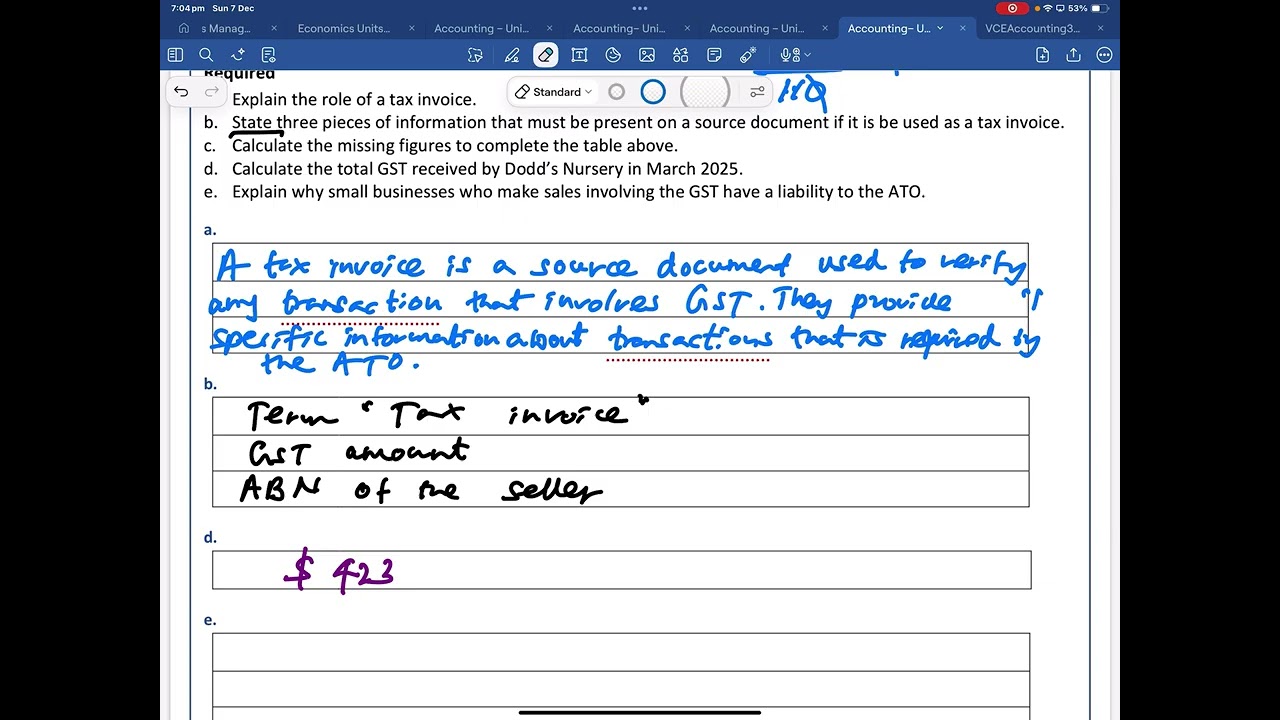 7:04 pm Sun 7 Dec
53%
s Manag...
Economics Units...
Accounting – Uni...
Accounting– Uni...
Accounting – Uni...
Accounting– U...
VCEAccounting3...
Required
Standard
Explain the role of a tax invoice.
b. State three pieces of information that must be present on a source document if it is be used as a tax invoice.
c. Calculate the missing figures to complete the table above.
d. Calculate the total GST received by Dodd's Nursery in March 2025.
e. Explain why small businesses who make sales involving the GST have a liability to the ATO.
a.
A tax invoice is a source document used to verify
any transaction that involves GST. They provide
specific information about transactions that is required by
the ATO.
b.
Term "Tax invoice"
GST amount
ABN of the seller
d.
$ 423
e.